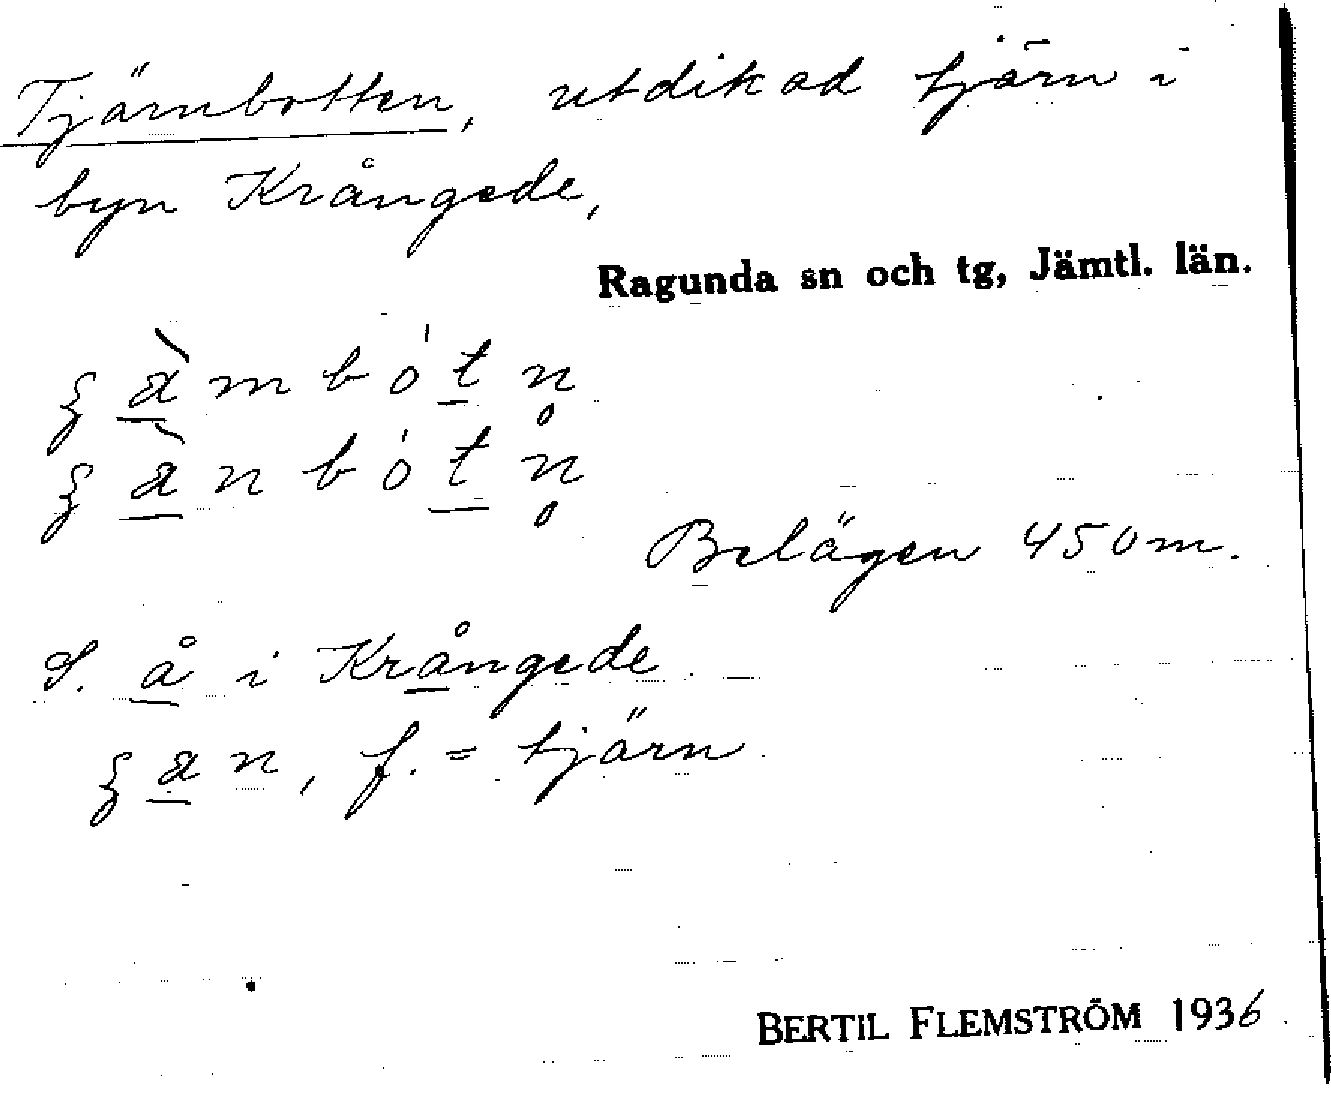 Tjärnbotten, utdikad tjärn i
byn Krångede,
Ragunda sn och tg, Jämtl. län.
Belägen 450 m.
S. å i Krångede
f. = tjärn
BERTIL FLEMSTRÖM 1936